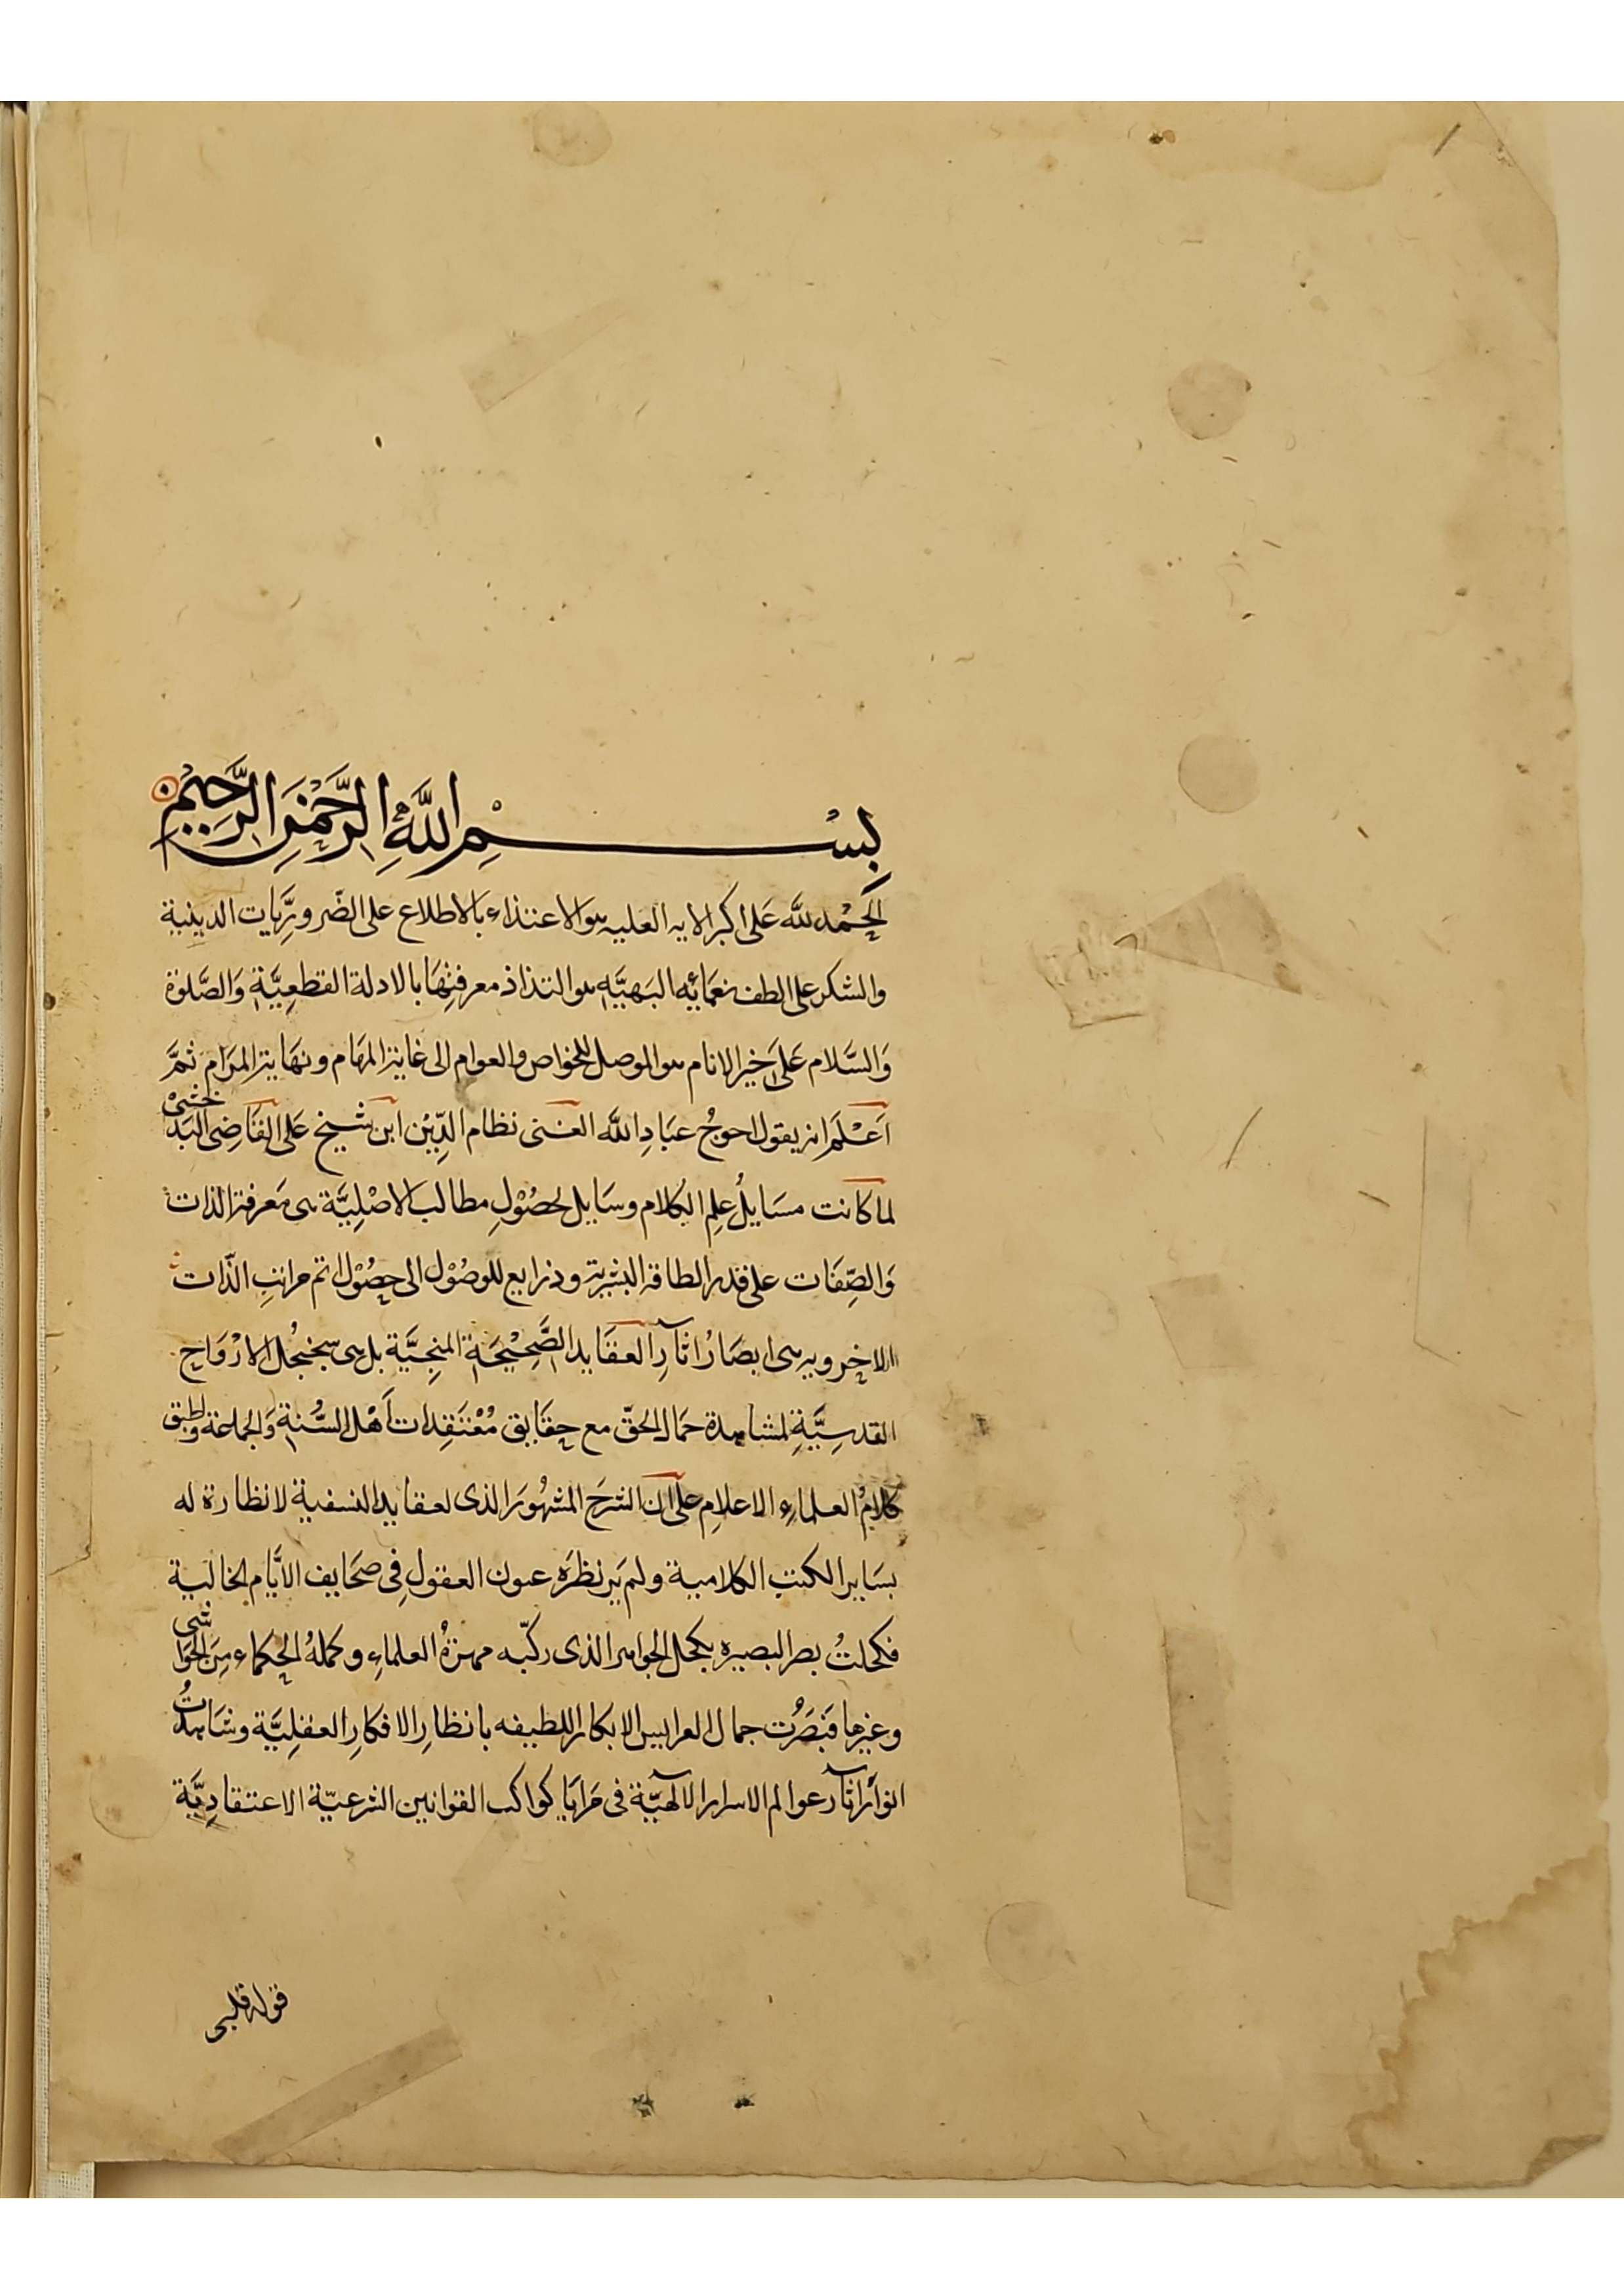 بِسْمِ اللَّهِ الرَّحْمٰنِ الرَّحِيْمِ
اَلْحَمْدُ للّٰه عَلىٰ اكبر الايه العليه هو الاعتذاء بالاطلاع على الضّروريَّات الدينية
والشكر على الطف نعمَائه البَهيَّه هو التذاذ معرفتِهَا بالادلة القطعِيَّةِ وَالصَّلوة
وَالسَّلام عَلَى خير الانام هو الموصل للخواص والعوام الى غاية المهَام ونهَاية المرَام ثمَّ
اَعْلَم انه يقول احوجُ عبَادِ اللّه الغنى نظام الدِّيْن ابن شيخ عَلى القَاضِى البَدخشىْ
لما كانت مسَايلُ عِلم الكلام وسَايل لحصُوْلِ مطالب الاصْلِيَّة هى مَعرفة الذات
وَالصِّفَات على قدر الطاقة البشرية وذرايع للوصُوْل الى حصُوْل اتم مراتبِ الذّات
الاخرويه هى ابصَارُ اثآرِ العقَايد الصَّحِيْحَة المنجيَّة بل هى سجنجُل الارْوَاح
القدسِيَّةِ لمشاهدة جمَال الحقّ مع حقَايق مُعْتَقِدات اَهْل السُّنةِ وَالجماعة وَاطبق
كلامُ العلماءِ الاعلامِ على ان الشرحَ المشهُورَ الذى لعقايد النسفية لا نظارة له
بسَاير الكتبِ الكلامية ولم يَر نظرَه عيون العقولِ فى صحَايف الايَّام الخالية
فكحلتُ بصر البصيره بكحل الجواهر الذى ركبّه مهرةُ العلماءِ وكملهُ الحكماء مِنَ الحَوَاشى
وغيرها فبَصَرْت جمال العرايس الابكار اللطيفه بانظارِ الافكارِ العقلِيَّة وشَاهدْتُ
انوارَ اثآر عوالم الاسرار الالٓهيَّة فى مَرايَا كواكب القوانين الشرعيّة الاعتقادِيَّة
قوله قلبى